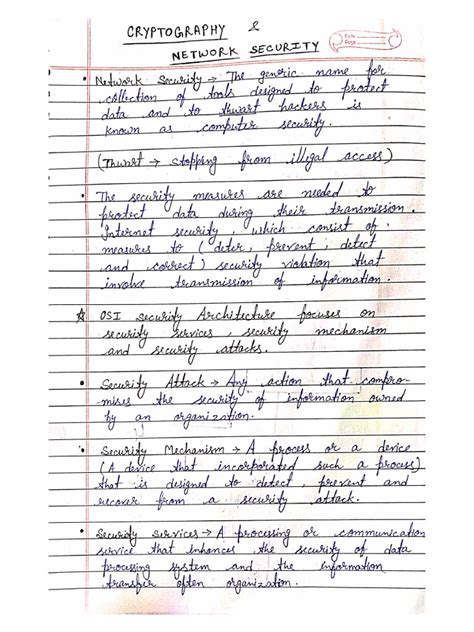 CRYPTOGRAPHY &
NETWORK SECURITY
Date
Page
• Network Security → The generic name for
collection of tools designed to protect
data and to thwart hackers is
known as computer security.
(Thwart → stopping from illegal access)
• The security measures are needed to
protect data during their transmission.
Internet security, which consist of
measures to (deter, prevent, detect
and correct) security violation that
involve transmission of information.
☆ OSI Security Architecture focuses on
security services, security mechanism
and security attacks.
• Security Attack → Any action that compro-
mises the security of information owned
by an organization.
• Security Mechanism → A process or a device
(A device that incorporated such a process)
that is designed to detect, prevent and
recover from a security attack.
• Security Services → A processing or communication
service that enhances the security of data
processing system and the information
transfer often organization.